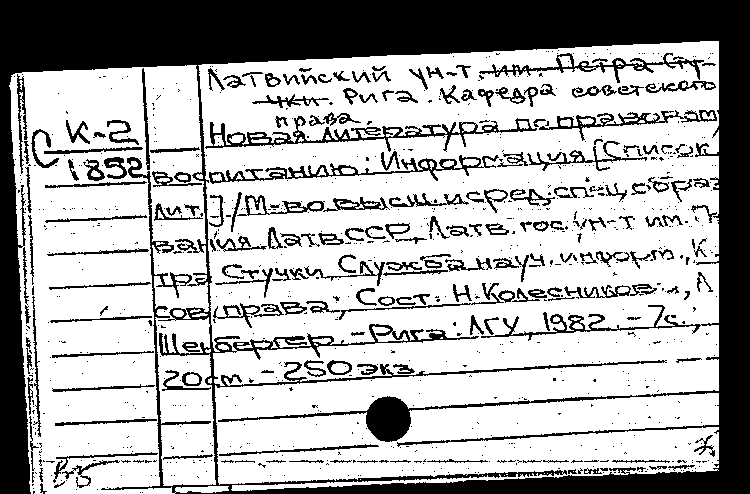 Латвийский ун-т. им. Петра Сту-
чки. Рига. Кафедра советского
права.
С К-2
1852
Новая литература по правовому
воспитанию: Информация [Список
лит.] / М-во высш. и сред. спец. образо
вания ЛатвССР, Латв. гос. ун-т им. Пе-
тра Стучки, Служба науч. информ., К.
сов. права; Сост: Н. Колесников., Л
Шенбергер. - Рига: ЛГУ, 1982. - 7с.;
20 см. - 250 экз.